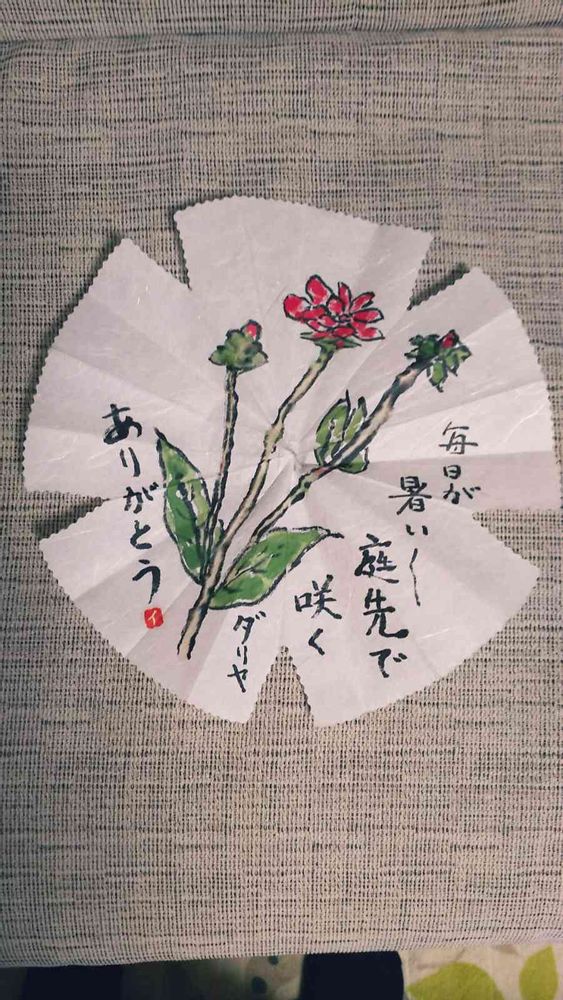 毎日が
暑い〜
庭先で
咲く
ダリヤ
ありがとう
イ